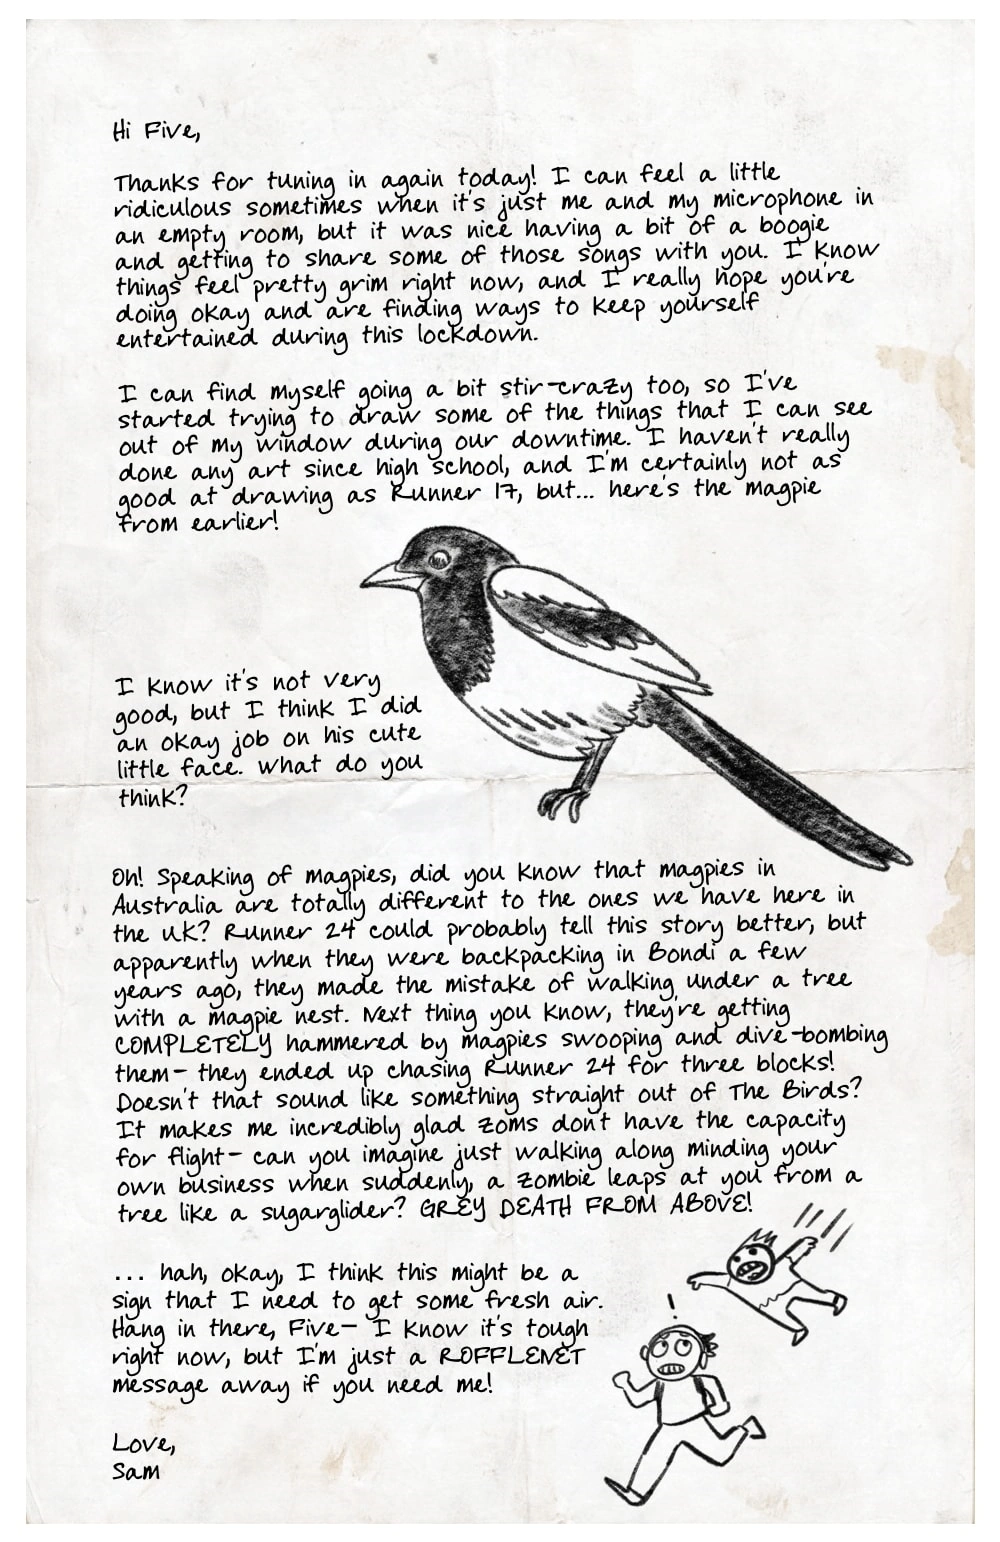 Hi Five,
Thanks for tuning in again today! I can feel a little
ridiculous sometimes when it's just me and my microphone in
an empty room, but it was nice having a bit of a boogie
and getting to share some of those songs with you. I know
things feel pretty grim right now, and I really hope you're
doing okay and are finding ways to keep yourself
entertained during this lockdown.
I can find myself going a bit stir-crazy too, so I've
started trying to draw some of the things that I can see
out of my window during our downtime. I haven't really
done any art since high school, and I'm certainly not as
good at drawing as Runner 17, but... here's the magpie
from earlier!
I know it's not very
good, but I think I did
an okay job on his cute
little face. What do you
think?
Oh! Speaking of magpies, did you know that magpies in
Australia are totally different to the ones we have here in
the UK? Runner 24 could probably tell this story better, but
apparently when they were backpacking in Bondi a few
years ago, they made the mistake of walking under a tree
with a magpie nest. Next thing you know, they're getting
COMPLETELY hammered by magpies swooping and dive-bombing
them- they ended up chasing Runner 24 for three blocks!
Doesn't that sound like something straight out of The Birds?
It makes me incredibly glad zoms don't have the capacity
for flight- can you imagine just walking along minding your
own business when suddenly, a zombie leaps at you from a
tree like a sugarglider? GREY DEATH FROM ABOVE!
... hah, okay, I think this might be a
sign that I need to get some fresh air.
Hang in there, Five- I know it's tough
right now, but I'm just a ROFFLENET
message away if you need me!
!
Love,
Sam